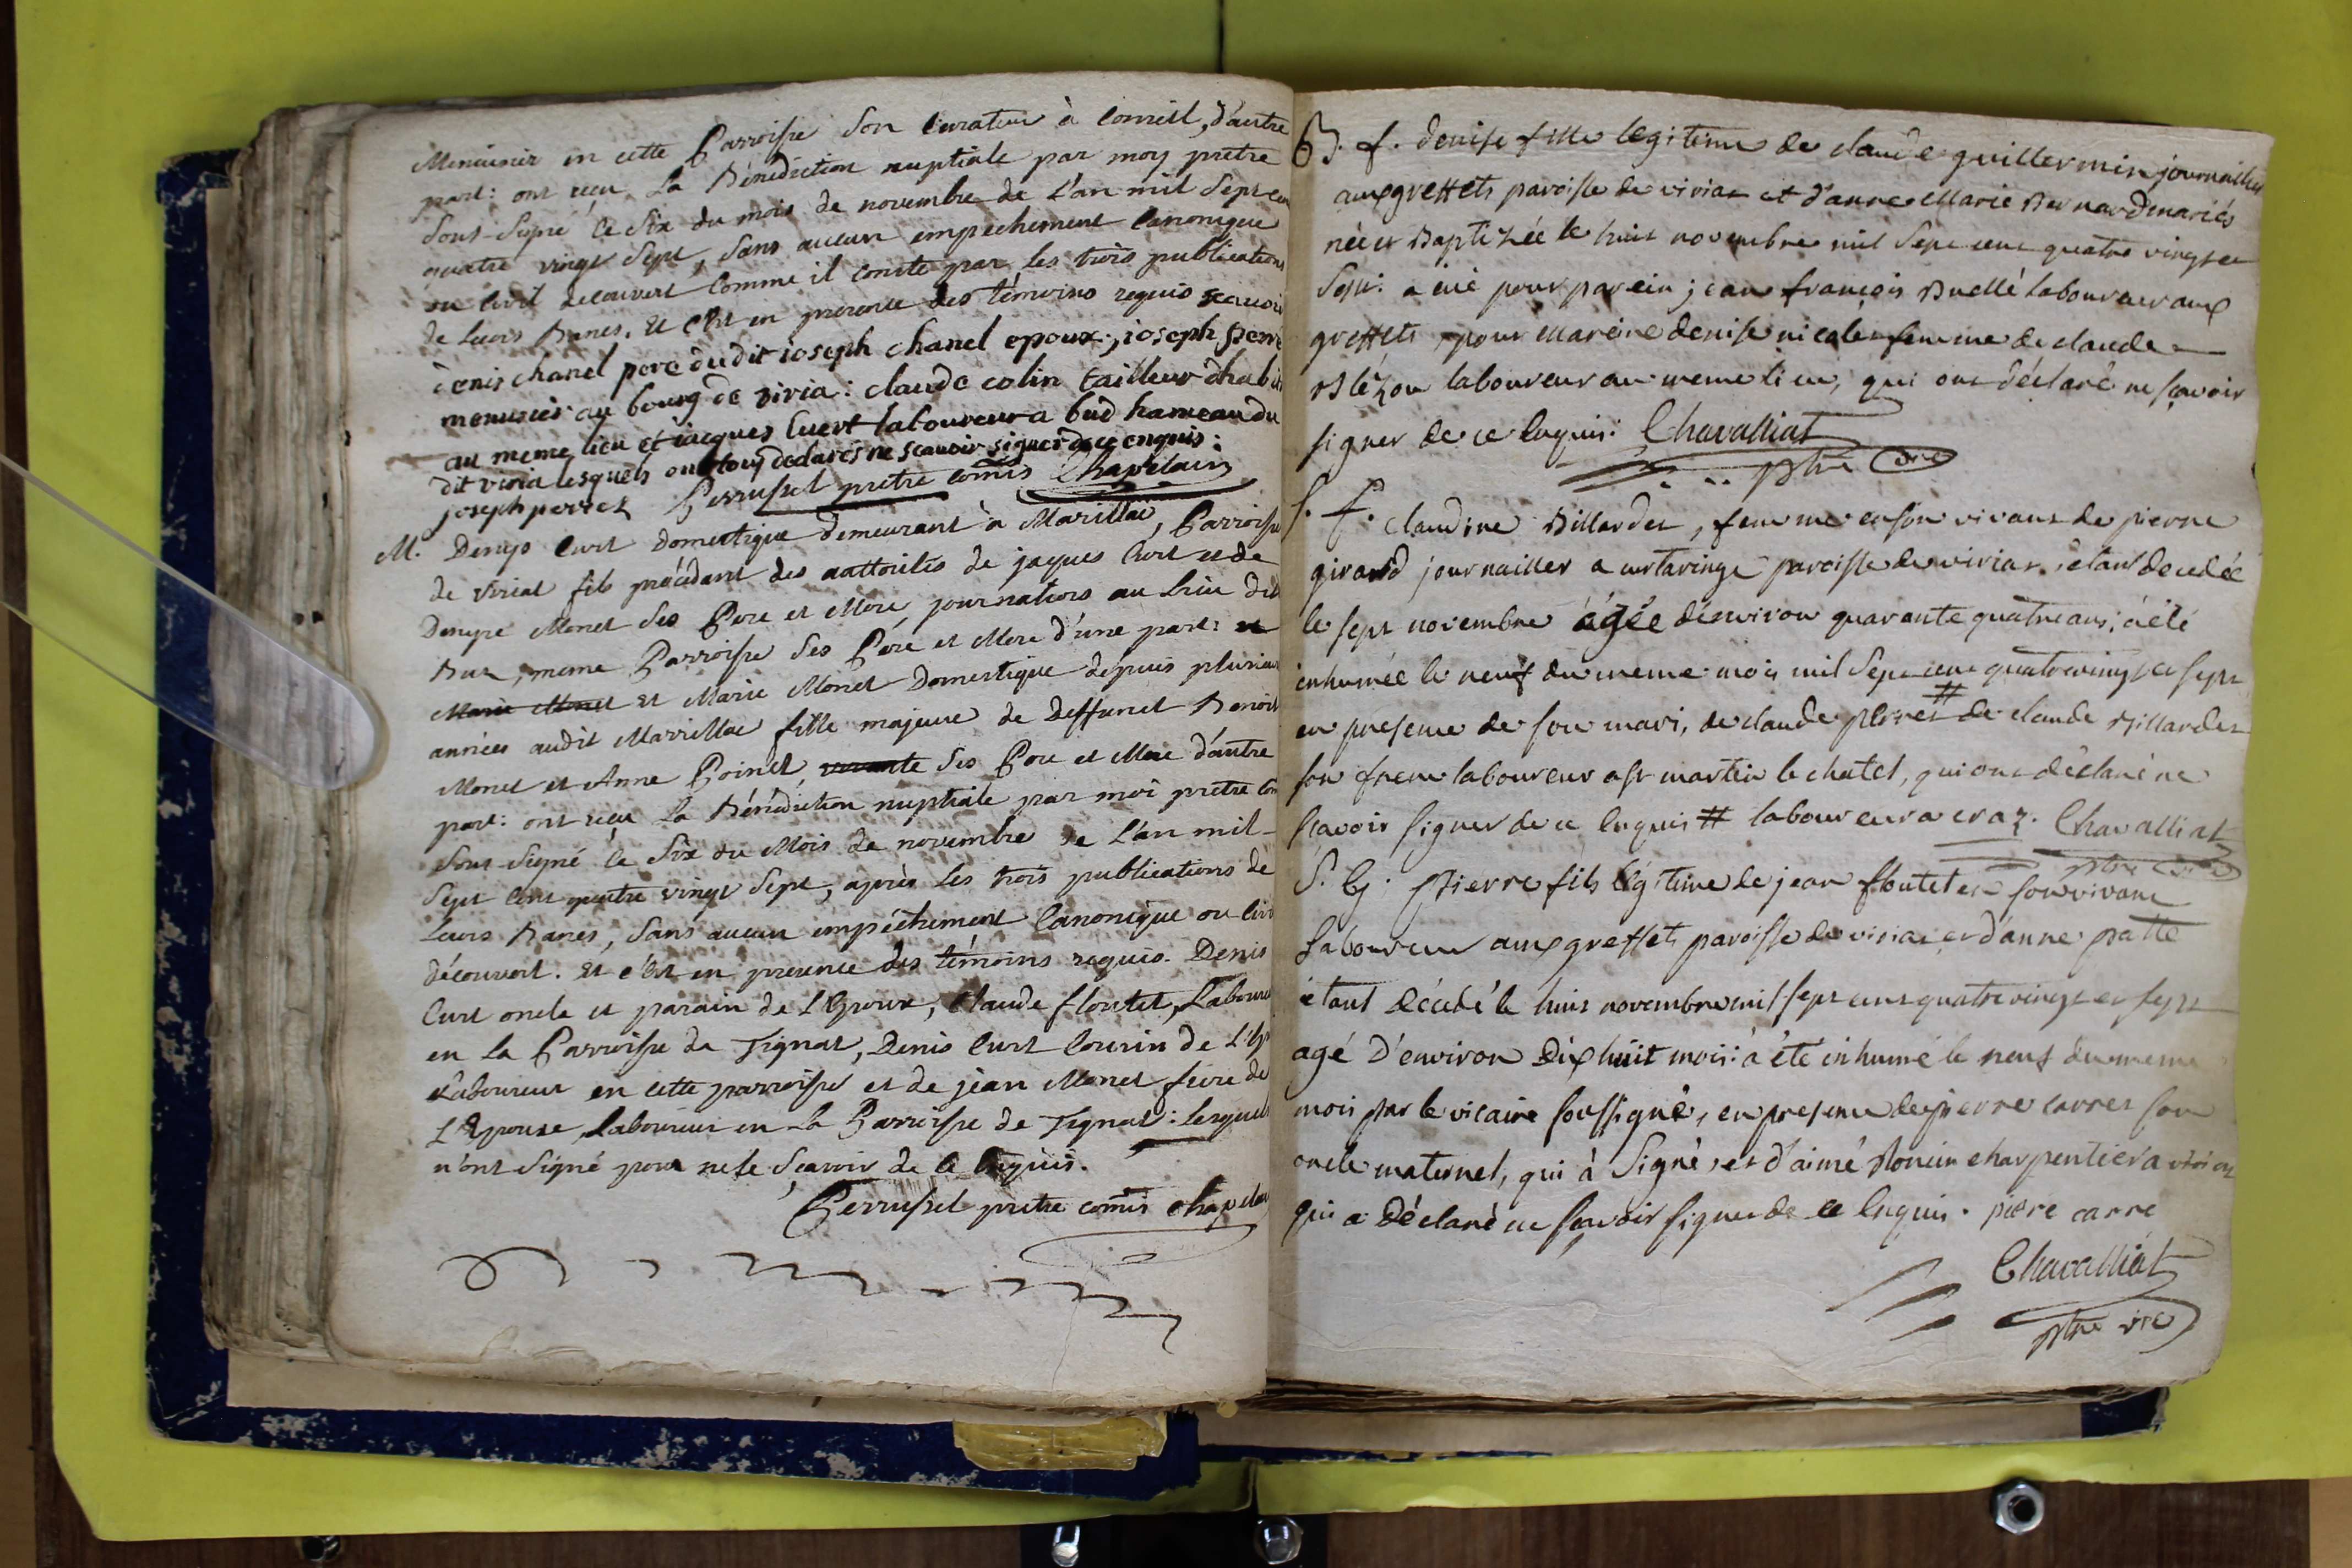 Menuisier en cette Parroisse son curateur à conseil, d'autre
part: ont reçu La Bénédiction nuptiale par moy prêtre
Sous-Signé le Six du mois de novembre de L'an mil Sept cen
quatre vingt Sept, Sans aucun empechement Canonique
ou Civil decouvert Comme il conste par les trois publications
de Leurs Banes. Et c'Est en presence des témoins requis scavoir
denis chanel pere dudit ioseph chanel epoux, ioseph perre
menusier au bourg de viria: claude colin tailleur d'habit
au meme lieu et iacques Cuert laboureur a bud hameau du
dit viria lesquels ont tous declarés ne scavoir signer de ce enquis:
joseph perret Perrusset prêtre comis Chapelain
M. Denys Curt Domestique demeurant à Marillac, Parroisse
de Viriat fils procédant des auttorités de jaques Curt et de
Denyse Monet Ses Pere et Mere, journaliers au Lieu dit
Bu, meme Parroisse Ses Père et Mere d'une part: et
Marie Monet et Marie Monet Domestique depuis plusieur
années audit Marillac fille majeure de Deffunct Benoit
Monet et Anne Poinet, vivante Ses Pere et Mere d'autre
part: ont reçu La Bénédiction nuptiale par moi prêtre com
Sous-Signé le Six du Mois de novembre de L'an mil-
Sept Cent quatre vingt Sept, après Les trois publications de
Leurs Banes, Sans aucun empéchement Canonique ou Civil
découvert. Et c'Est en presence des témoins requis. Denis
Curt oncle et parain de L'Epoux, Claude floutet, Laboure
en La Parroisse de Tignat, Denis Curt Cousin de L'Ep
Laboureur en cette parroisse et de jean Monet frere de
L'Epouse, Laboureur en La Parroisse de Tignat: Lesquels
n'ont Signé pour ne le Sçavoir de ce Enquis.
Perrusset prêtre comis chapelain
B. f. denise fille legitime de claude guillermin journallier
aux greffets paroisse de viriat et d'anne Marie Bernard mariés
née et Baptizée le huit novembre mil Sept cent quatre vingt et
Sept: a eüe pour parein jean françois Buellé laboureur aux
greffets, pour Mareine denise nicolet femme de claude
Blézon laboureur au meme lieu, qui ont déclaré ne sçavoir
signer de ce Enquis: Chavalliat
ptre vre
S. f. claudine Billardet, femme en son vivant de pierre
girard journallier a curtaringe paroisse de viriat, étant décedée
le sept novembre agée d'environ quarante quatre ans; a été
inhumée le neuf du meme mois mil Sept cent quatrevingt et sept
en presence de son mari, de claude perret # de claude Billardet
son frere laboureur a st martin le chatel, qui ont déclaré ne
sçavoir signer de ce Enquis # laboureur a craz. Chavalliat
ptre vre
S. G. pierre fils légitime de jean floutet en son vivant
Laboureur aux greffets paroisse de viriat et d'anne patte
étant décedé le huit novembre mil sept cent quatrevingt et sept
agé d'environ Dix huit mois: a été inhumé le neuf du meme
mois par le vicaire soussigné, en presence de pierre carret son
oncle maternel, qui à Signé, et d'aimé Monin charpentier a viriat
qui a Déclaré ne sçavoir signer de ce Enquis. piere carre
Chavalliat
ptre vre